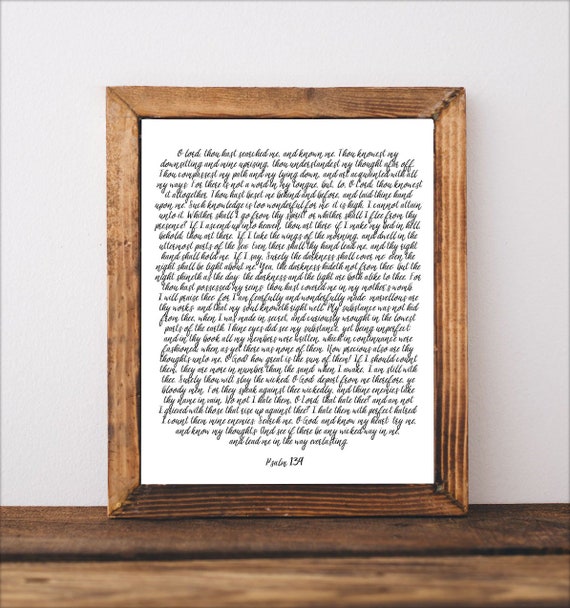 O Lord, thou hast searched me, and known me. Thou knowest my
downsitting and mine uprising, thou understandest my thought afar off.
Thou compassest my path and my lying down, and art acquainted with all
my ways. For there is not a word in my tongue, but, lo, O Lord, thou knowest
it altogether. Thou hast beset me behind and before, and laid thine hand
upon me. Such knowledge is too wonderful for me; it is high, I cannot attain
unto it. Whither shall I go from thy spirit? or whither shall I flee from thy
presence? If I ascend up into heaven, thou art there: if I make my bed in hell,
behold, thou art there. If I take the wings of the morning, and dwell in the
uttermost parts of the sea; Even there shall thy hand lead me, and thy right
hand shall hold me. If I say, Surely the darkness shall cover me; even the
night shall be light about me. Yea, the darkness hideth not from thee; but the
night shineth as the day: the darkness and the light are both alike to thee. For
thou hast possessed my reins: thou hast covered me in my mother's womb.
I will praise thee; for I am fearfully and wonderfully made: marvellous are
thy works; and that my soul knoweth right well. My substance was not hid
from thee, when I was made in secret, and curiously wrought in the lowest
parts of the earth. Thine eyes did see my substance, yet being unperfect;
and in thy book all my members were written, which in continuance were
fashioned, when as yet there was none of them. How precious also are thy
thoughts unto me, O God! how great is the sum of them! If I should count
them, they are more in number than the sand: when I awake, I am still with
thee. Surely thou wilt slay the wicked, O God: depart from me therefore, ye
bloody men. For they speak against thee wickedly, and thine enemies take
thy name in vain. Do not I hate them, O Lord, that hate thee? and am not
I grieved with those that rise up against thee? I hate them with perfect hatred:
I count them mine enemies. Search me, O God, and know my heart: try me,
and know my thoughts: And see if there be any wicked way in me,
and lead me in the way everlasting.
Psalm 139